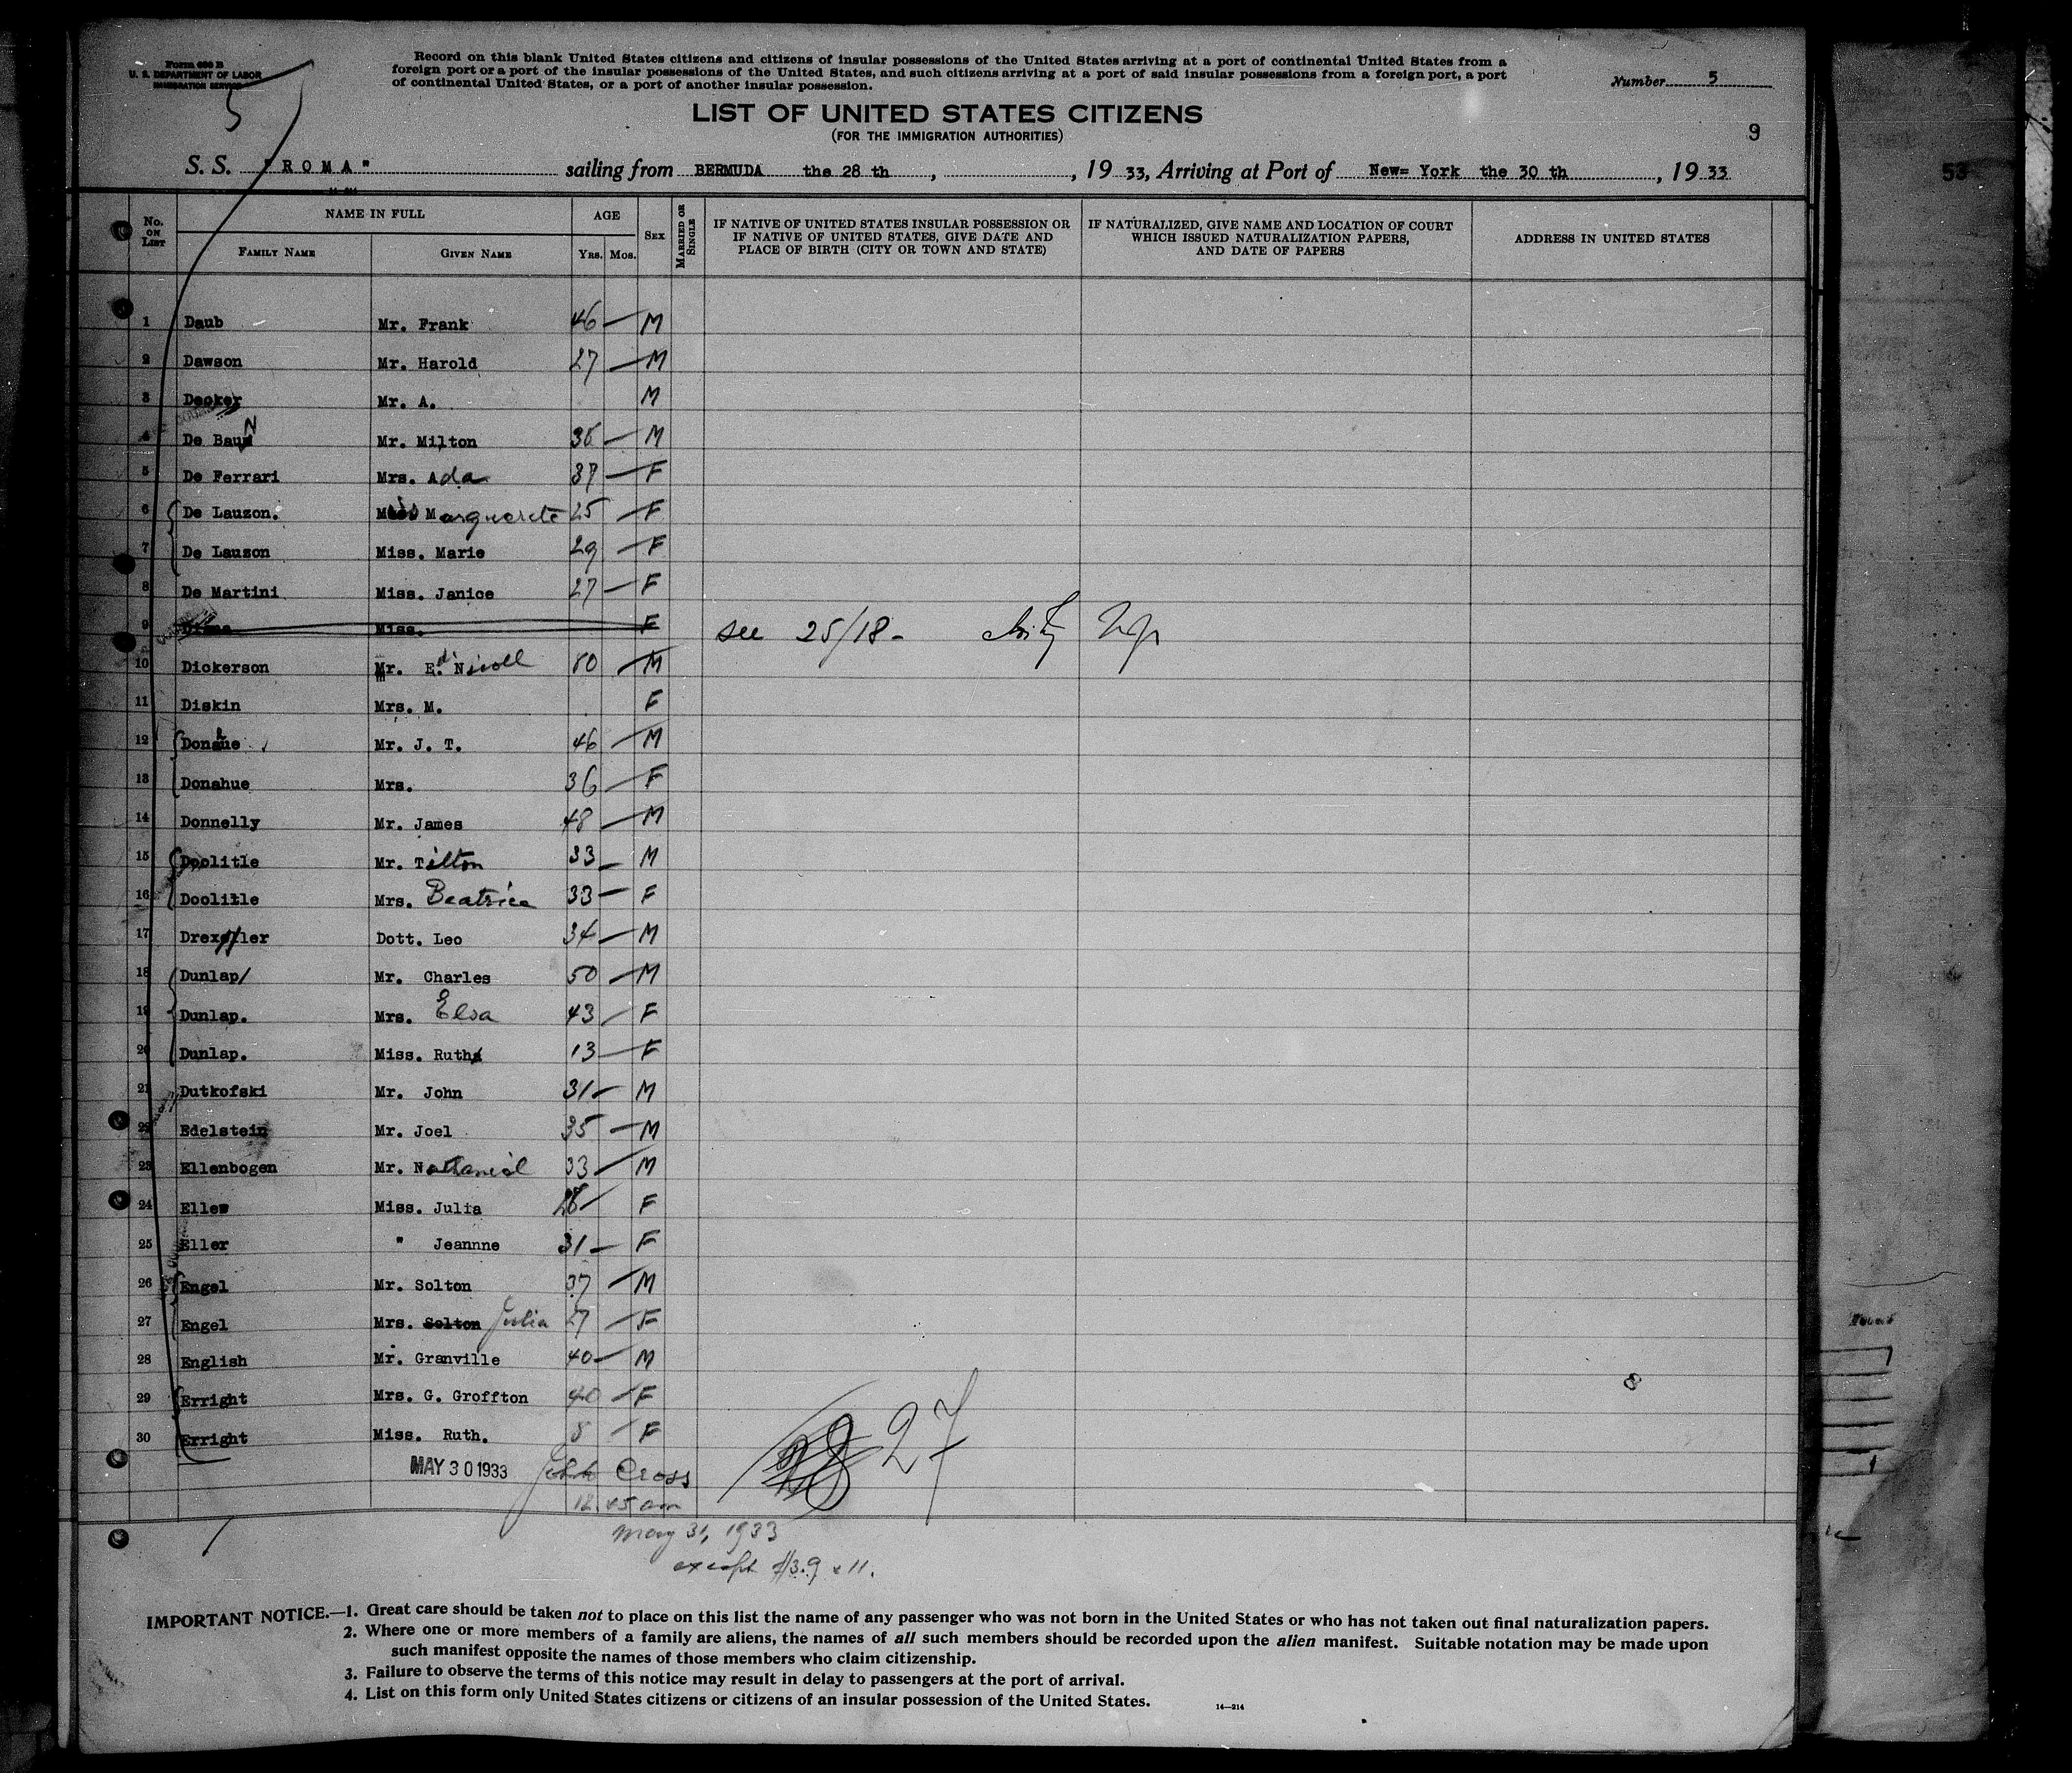 Form 630 B
U. S. DEPARTMENT OF LABOR
IMMIGRATION SERVICE
5
Record on this blank United States citizens and citizens of insular possessions of the United States arriving at a port of continental United States from a
foreign port or a port of the insular possessions of the United States, and such citizens arriving at a port of said insular possessions from a foreign port, a port
of continental United States, or a port of another insular possession.
Number 5
LIST OF UNITED STATES CITIZENS
(FOR THE IMMIGRATION AUTHORITIES)
9
S. S. "ROMA" sailing from BERMUDA the 28 th , , 19 33, Arriving at Port of New= York the 30 th , 19 33
53
No. ON LIST NAME IN FULL AGE SEX MARRIED OR SINGLE IF NATIVE OF UNITED STATES INSULAR POSSESSION OR IF NATIVE OF UNITED STATES, GIVE DATE AND PLACE OF BIRTH (CITY OR TOWN AND STATE) IF NATURALIZED, GIVE NAME AND LOCATION OF COURT WHICH ISSUED NATURALIZATION PAPERS, AND DATE OF PAPERS ADDRESS IN UNITED STATES
FAMILY NAME GIVEN NAME YRS. MOS.
1 Daub Mr. Frank 46 — M
2 Dawson Mr. Harold 27 — M
3 Decker Mr. A. M
4 De Baun Mr. Milton — M
5 De Ferrari Mrs. Ada 37 — F
6 De Lauzon. Miss Marguerete 25 — F
7 De Lauzon Miss. Marie 29 — F
8 De Martini Miss. Janice 27 — F
9 Miss. F see 25/18 -
10 Dickerson Mr. Ed. Nicoll — M
11 Diskin Mrs. M. F
12 Donahue Mr. J. T. 46 — M
13 Donahue Mrs. 36 — F
14 Donnelly Mr. James 48 — M
15 Doolitle Mr. Tilton 33 — M
16 Doolitle Mrs. Beatrice 33 — F
17 Drexler Dott. Leo 34 — M
18 Dunlap/ Mr. Charles 50 — M
19 Dunlap. Mrs. Elsa 43 — F
20 Dunlap. Miss. Ruth 13 — F
21 Dutkofski Mr. John 31 — M
22 Edelstein Mr. Joel 35 — M
23 Ellenbogen Mr. Nathaniel 33 — M
24 Eller Miss. Julia — F
25 Eller " Jeannne 31 — F
26 Engel Mr. Solton 37 — M
27 Engel Mrs. Solton Julia 27 — F
28 English Mr. Granville 40 — M
29 Erright Mrs. G. Groffton 40 — F
30 Erright Miss. Ruth. 8 — F
8
28 27
MAY 30 1933 Cross
12.45 am
May 31, 1933
except #3.9 & 11.
IMPORTANT NOTICE.—1. Great care should be taken not to place on this list the name of any passenger who was not born in the United States or who has not taken out final naturalization papers.
2. Where one or more members of a family are aliens, the names of all such members should be recorded upon the alien manifest. Suitable notation may be made upon
such manifest opposite the names of those members who claim citizenship.
3. Failure to observe the terms of this notice may result in delay to passengers at the port of arrival.
4. List on this form only United States citizens or citizens of an insular possession of the United States.
14—214